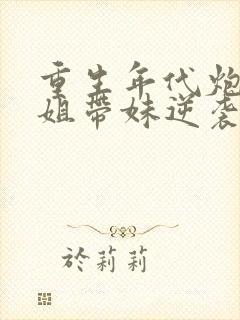 重生年代炮
姐带妹逆袭
於莉莉